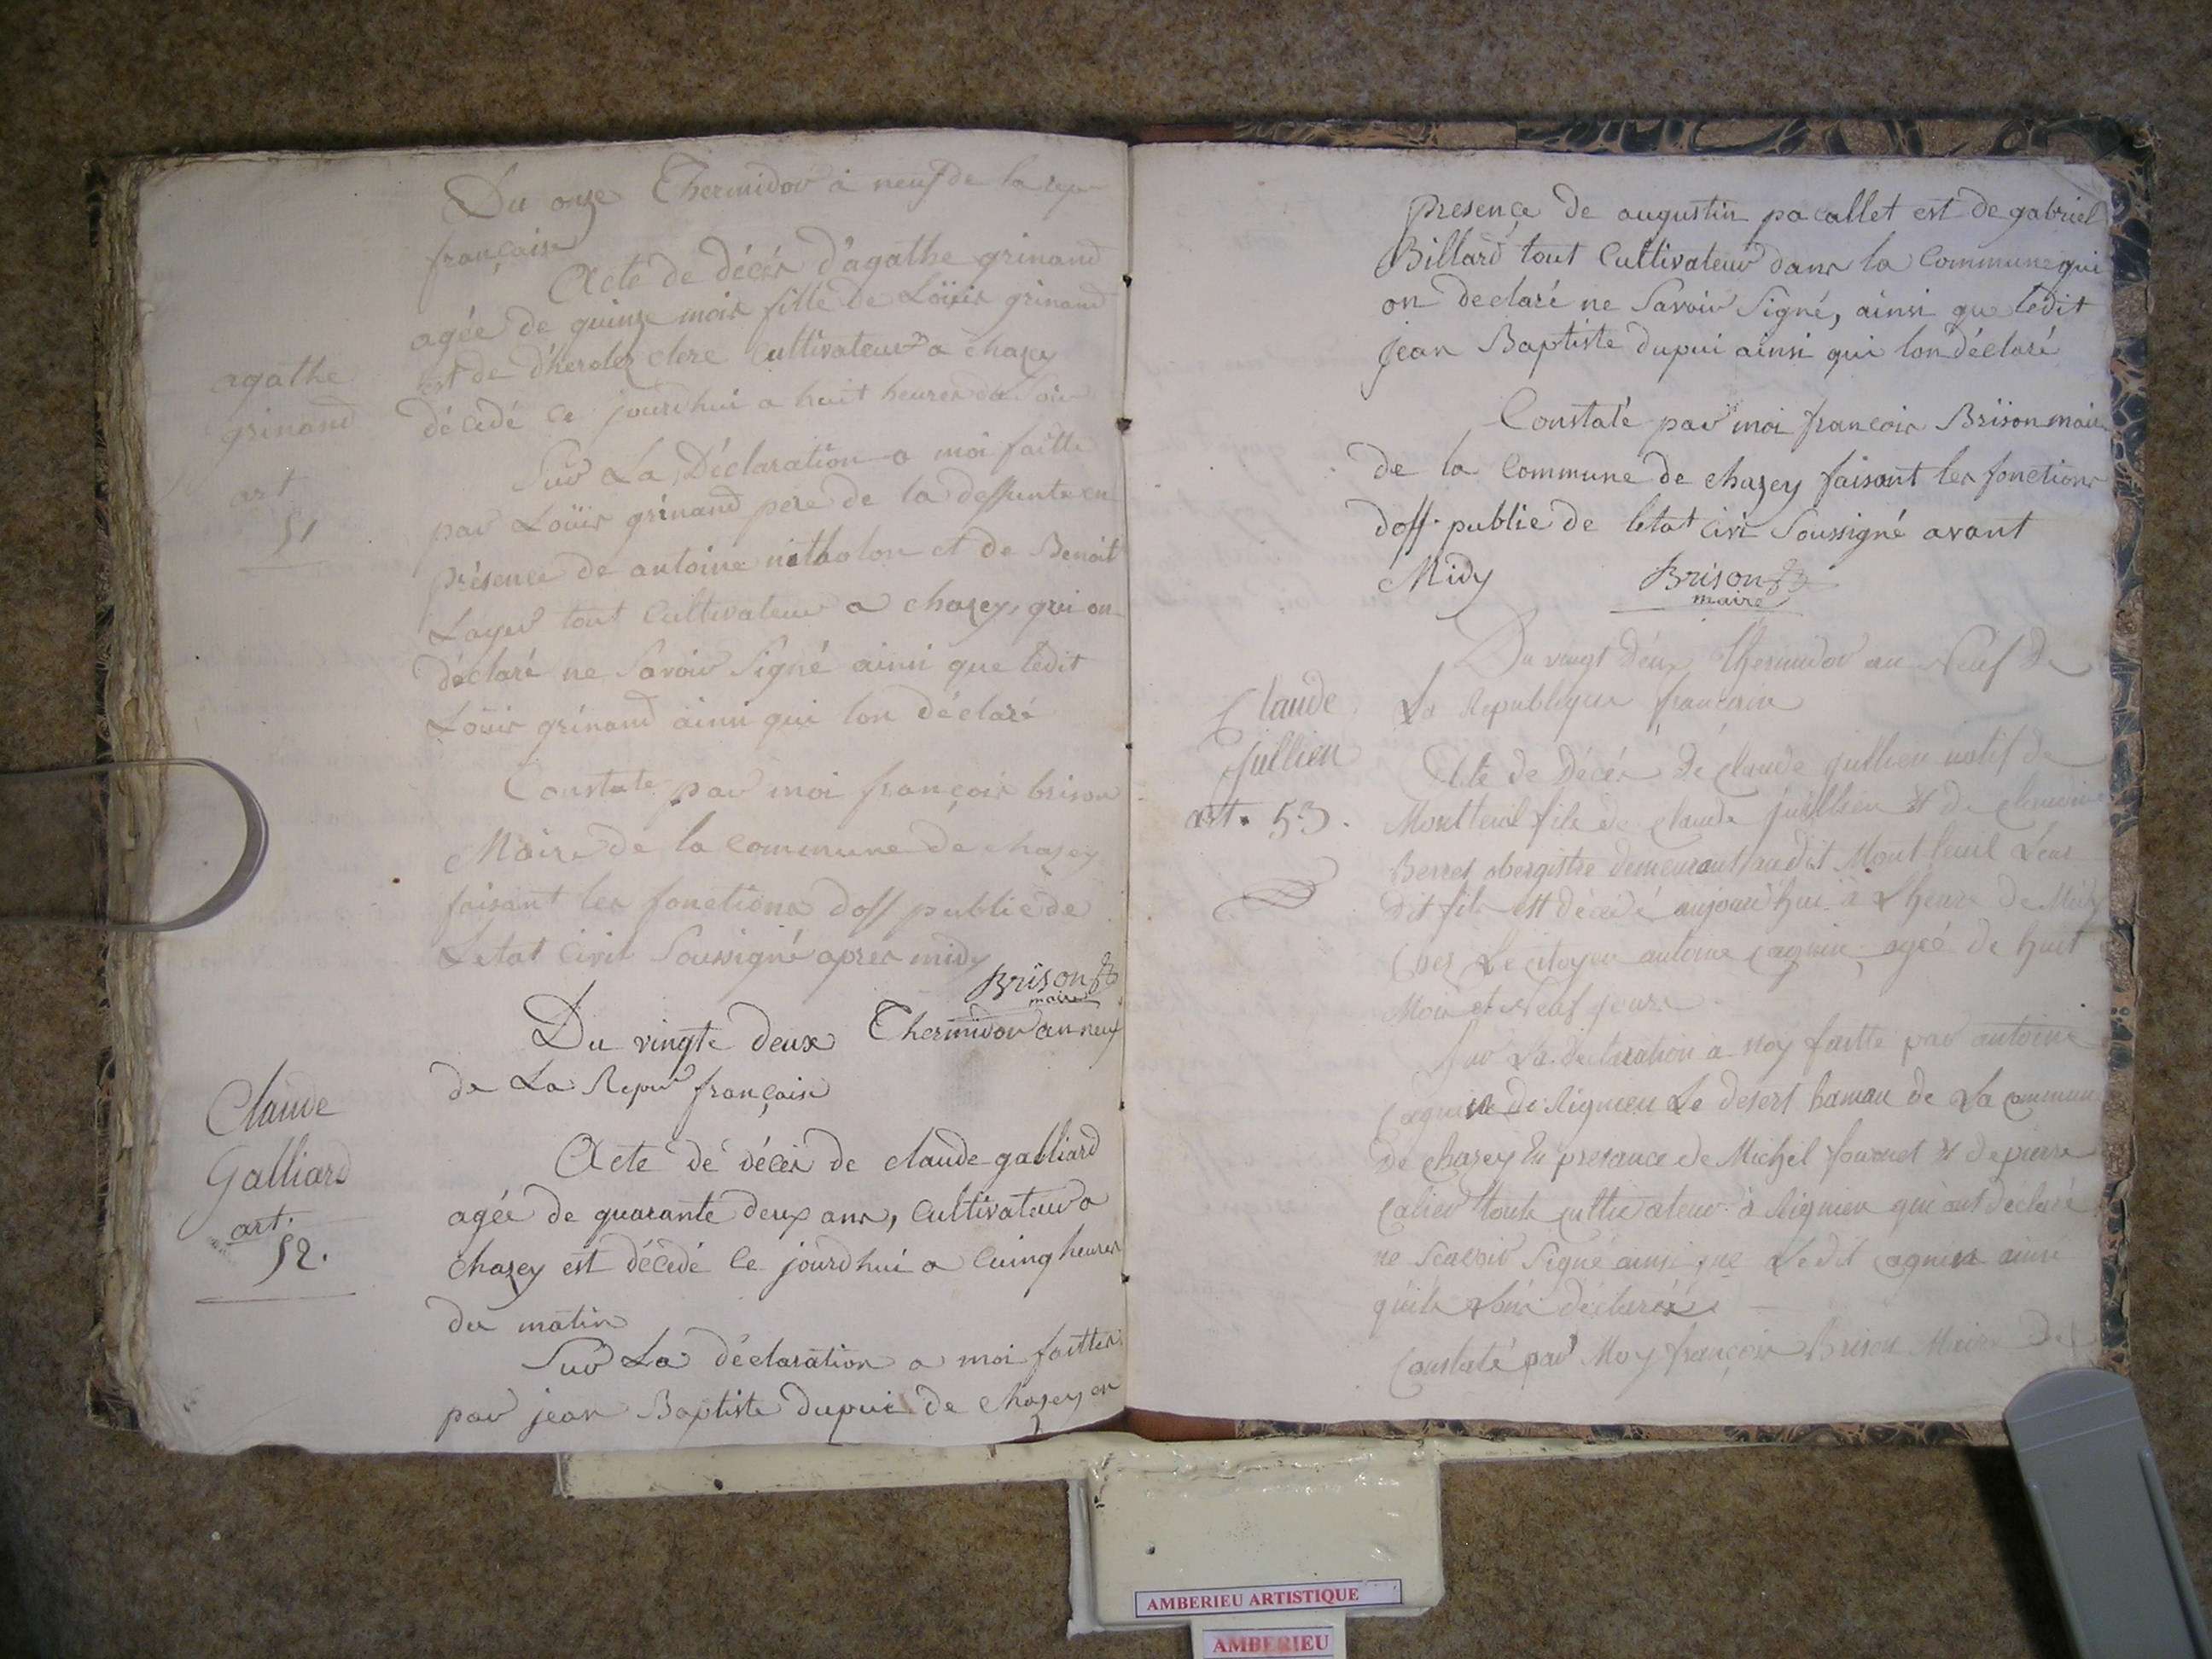 Du onze Thermidor a neuf de la repu
française
Acte de décés d'agathe grinand
agée de quinze mois fille de Loüis grinand
est de cultivateur a chazey
décédé ce jourdhui a huit heures du Soir
agathe
grinand
art
51
Sur La Déclaration a moi faitte
par Loüis grinand pere de la deffunte en
présence de antoine et de Benoit
Layer tout Cultivateur a chazey, qui on
déclaré ne Savoir Signé ainsi que ledit
Loüis grinand ainsi qui lon déclaré
Constate par moi françois brison
Maire de la commune de chazey
faisant les fonctions doff publie de
Letat Civil Soussigné apres midy
Brison
maire
Du vingte deux Thermidor an neuf
de La Repu françaisse
Claude
Galliard
art.
52.
Acte de décés de claude galliard
agée de quarante deux ans, Cultivateur a
chazey est décédé ce jourdhui a Cuinq heures
du matin
Sur La déclaration a moi faittes
par jean Baptiste dupui de chazey en
presençe de augustin pacallet est de gabriel
Billard tout Cultivateur dans la Commune qui
on declaré ne Savoir Signé, ainsi que ledit
jean Baptiste dupui ainsi qui lon déclaré
Constaté par moi francois Brison maire
de la Commune de chazey faisant les fonctions
doff. publie de letat Civi Soussigné avant
Midy
Brison
maire
Du vingt deux thermidor an Neuf de
La Republique francaise
Claude
jullien
art. 53.
Acte de Décés de Claude jullien natif de
Montleuil fils de Claude juillien et de
Berret obergistre demeurant audit Montleuil Leur
dit fils est décédé aujourd'hui à Lheure de Midy
Chez Le citoyen antoine Cagnin, agée de huit
Mois et Neuf jours
Sur La declaration a Moy faitte par antoine
Cagnin de Rignieu Le desert hamau de La Commune
de Chazey En presance de Michel et de pierre
touts cultivateur à Rignieu qui ont déclaré
ne Scavoir Signé ainsi que Ledit Cagnin ainsi
quils déclaréé
Constaté par Moy françois Brison Maire de
AMBERIEU ARTISTIQUE
AMBERIEU